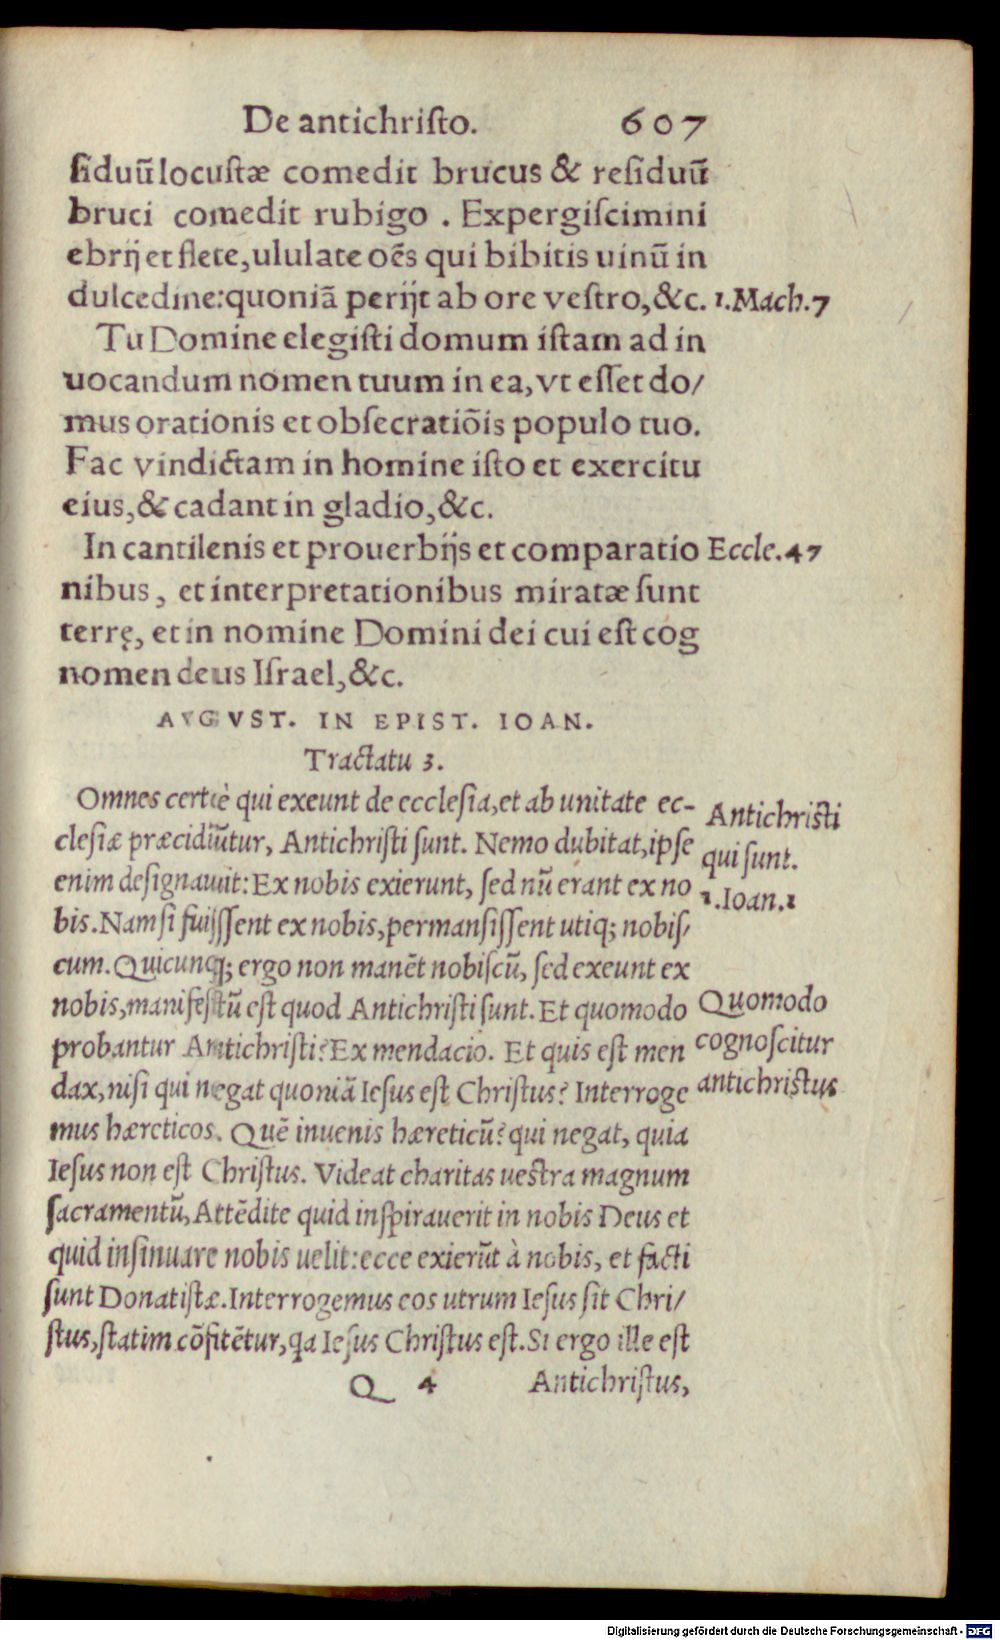 De antichristo. 607
siduũ locustæ comedit brucus & residuũ
bruci comedit rubigo . Expergiscimini
ebrij et flete, ululate oẽs qui bibitis uinũ in
dulcedine: quoniã perijt ab ore vestro, &c. 1.Mach.7
Tu Domine elegisti domum istam ad in
uocandum nomen tuum in ea, vt esset do/
mus orationis et obsecratiõis populo tuo.
Fac vindictam in homine isto et exercitu
eius, & cadant in gladio, &c.
In cantilenis et prouerbijs et comparatio Eccle.47
nibus, et interpretationibus miratæ sunt
terrę, et in nomine Domini dei cui est cog
nomen deus Israel, &c.
AVGVST. IN EPIST. IOAN.
Tractatu 3.
Omnes certè qui exeunt de ecclesia, et ab unitate ec-
clesiæ præcidũtur, Antichristi sunt. Nemo dubitat, ipse
enim designauit: Ex nobis exierunt, sed nũ erant ex no
bis. Nam si fuissent ex nobis, permansissent utiq; nobis/
cum. Quicunq; ergo non manẽt nobiscũ, sed exeunt ex
nobis, manifestũ est quod Antichristi sunt. Et quomodo
probantur Antichristi? Ex mendacio. Et quis est men
dax, nisi qui negat quoniã Iesus est Christus? Interroge
mus hæreticos. Quẽ inuenis hæreticũ? qui negat, quia
Iesus non est Christus. Videat charitas uestra magnum
sacramentũ, Attẽdite quid inspirauerit in nobis Deus et
quid insinuare nobis uelit: ecce exierũt à nobis, et facti
sunt Donatistæ. Interrogemus eos utrum Iesus sit Chri/
stus, statim cõfitẽtur, qa Iesus Christus est. Si ergo ille est
Q 4 Antichristus,
Antichristi
qui sunt.
1.Ioan.1
Quomodo
cognoscitur
antichristus
Digitalisierung gefördert durch die Deutsche Forschungsgemeinschaft - DFG